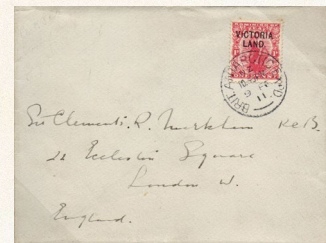 VICTORIA
LAND.
Sir Clements. R. Markham K.C.B.
21 Eccleston Square
London W.
England.